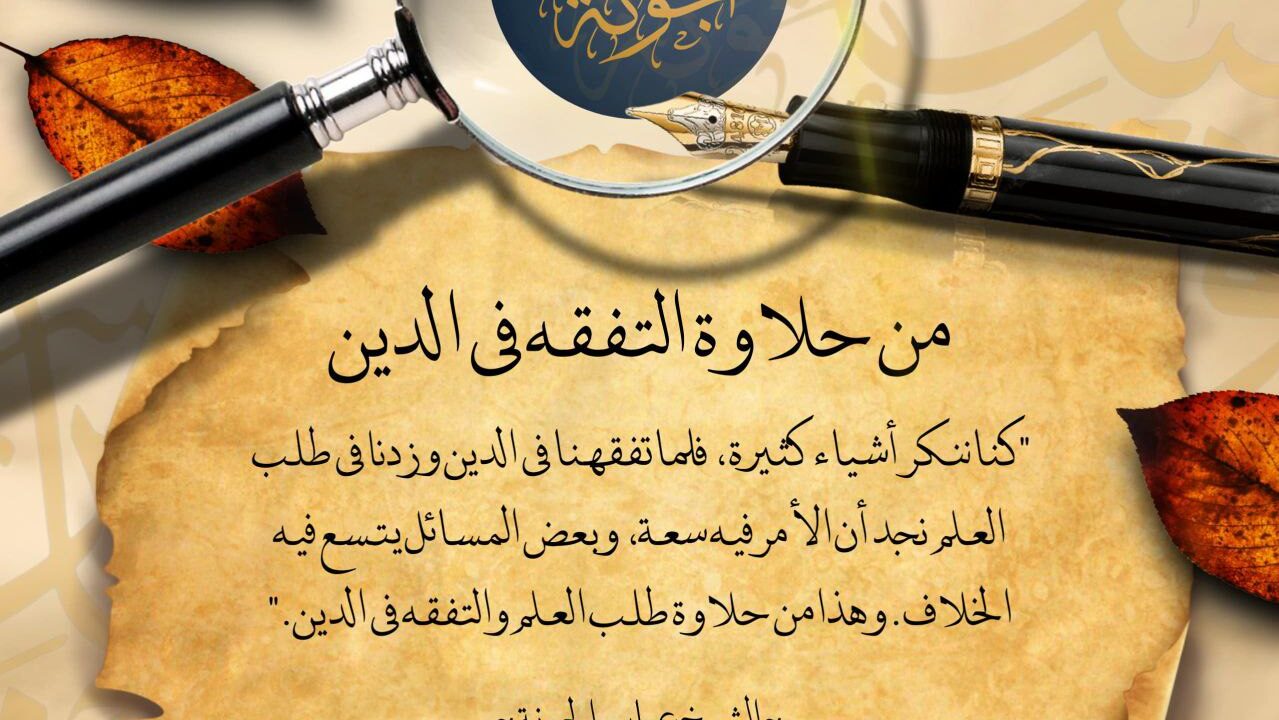 من حلاوة التفقه في الدين
"كنا ننكر أشياء كثيرة، فلما تفقهنا في الدين وزدنا في طلب
العلم نجد أن الأمر فيه سعة، وبعض المسائل يتسع فيه
الخلاف. وهذا من حلاوة طلب العلم والتفقه في الدين."